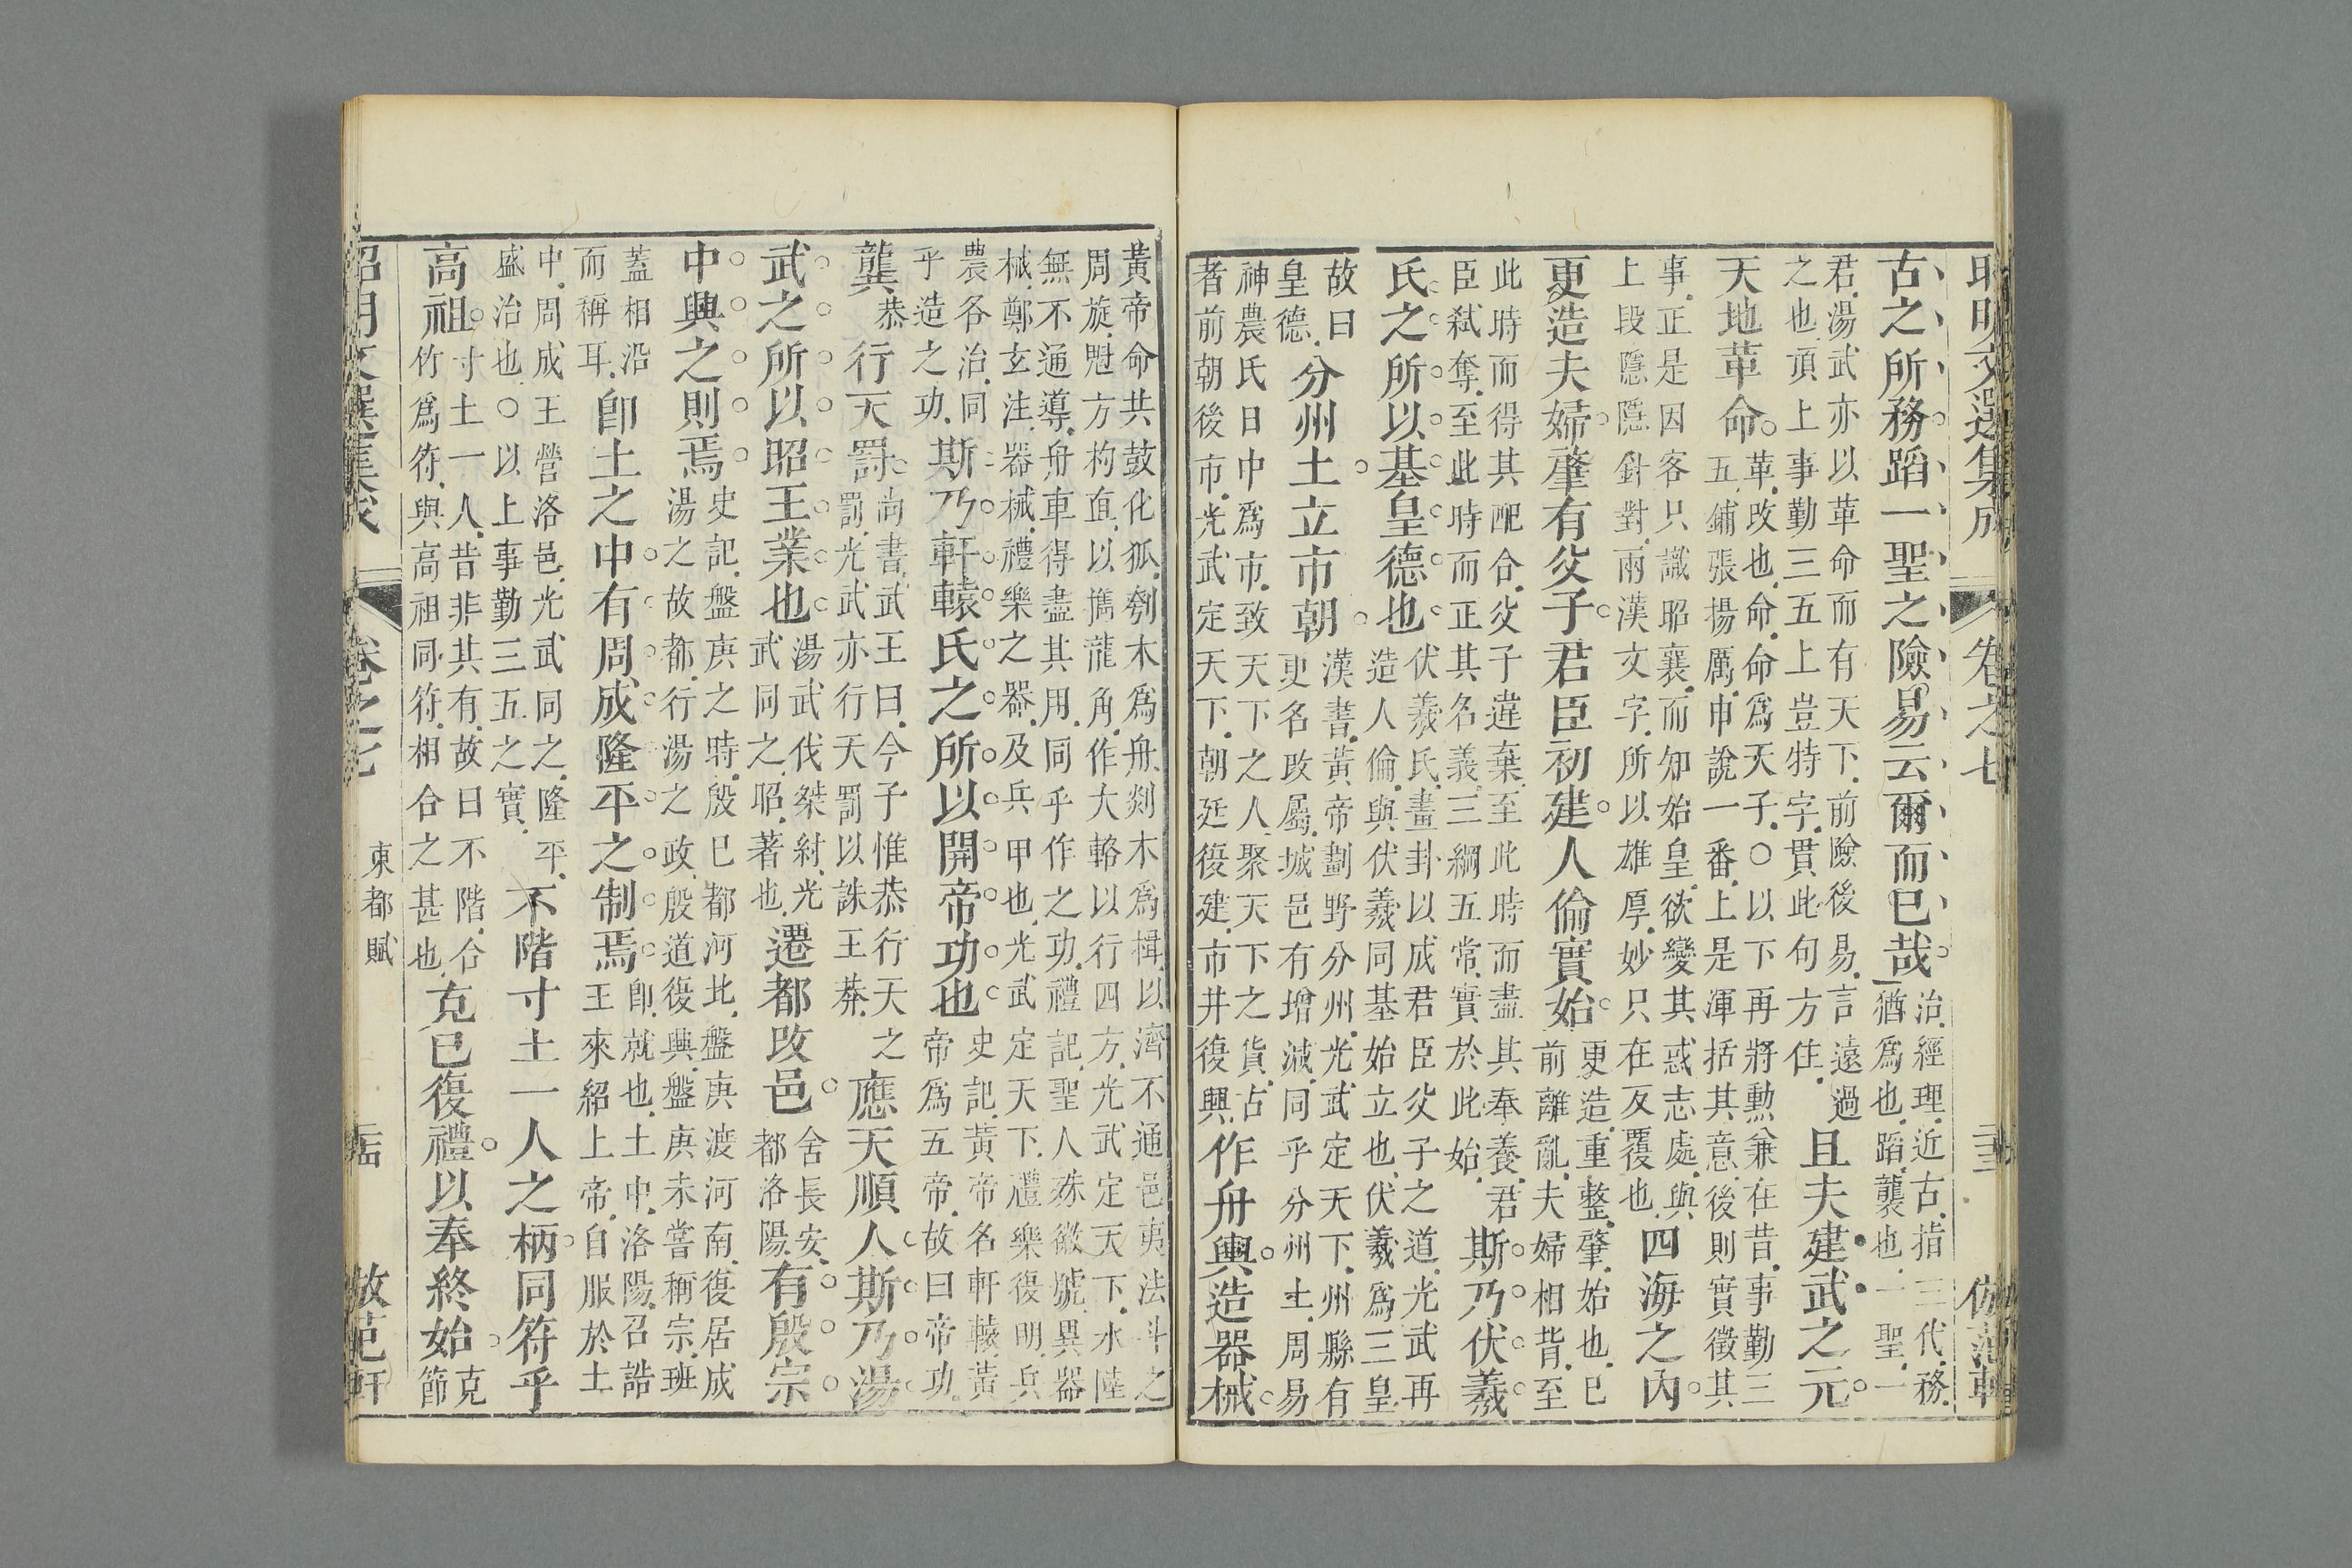 昭明文選集成 卷之七 倣范軒
古之所務蹈一聖之險易云爾而已哉
治.經理.近古.指三代.務.
猶爲也.蹈.襲也.一聖.一
君.湯武亦以革命而有天下.前險後易.言遠過
之也.頂上事勤三五上豈特字.貫此句方佳.
且夫建武之元
天地革命
革.改也.命.命爲天子.○以下再將勲兼在昔.事勤三
五.鋪張揚厲.申說一番.上是渾括其意.後則實徵其
事.正是因客只識昭襄.而知始皇.欲變其惑志處.與
上段隱隱針對.兩漢文字.所以雄厚.妙只在反覆也.
四海之內
更造夫婦肇有父子君臣初建人倫實始
更造.重整.肇.始也.已
前離亂.夫婦相背.至
此時而得其配合.父子違棄.至此時而盡其奉養.君
臣弒奪.至此時而正其名義.三綱五常.實於此始.
斯乃伏羲
氏之所以基皇德也
伏羲氏.畫卦以成君臣父子之道.光武再
造人倫.與伏羲同基始立也.伏羲爲三皇.
故曰
皇德.
分州土立市朝
漢書.黃帝劃野分州.光武定天下.州縣有
更名改屬.城邑有增減.同乎分州土.周易
神農氏日中爲市.致天下之人.聚天下之貨.占
者前朝後市.光武定天下.朝廷復建.市井復興.
作舟輿造器械
黃帝命共鼓化狐.刳木爲舟.剡木爲楫.以濟不通.邑夷法斗之
周旋.魁方杓直.以攜龍角.作大輅以行四方.光武定天下.水陸
無不通導.舟車得盡其用.同乎作之功.禮記.聖人殊徽號.異器
械.鄭玄注.器械.禮樂之器.及兵甲也.光武定天下.禮樂復明.兵
農各治.同
乎造之功.
斯乃軒轅氏之所以開帝功也
史記.黃帝名軒轅.黃
帝爲五帝.故曰帝功.
龔
恭
行天罰
尚書.武王曰.今予惟恭行天之
罰.光武亦行天罰以誅王莽.
應天順人斯乃湯
武之所以昭王業也
湯武伐桀紂.光
武同之.昭.著也.
遷都改邑
舍長安.
都洛陽.
有殷宗
中興之則焉
史記.盤庚之時.殷已都河北.盤庚渡河南.復居成
湯之故都.行湯之政.殷道復興.盤庚未嘗稱宗.班
蓋相沿
而稱耳.
卽土之中有周成隆平之制焉
卽.就也.土中.洛陽.召誥
王來紹上帝.自服於土
中.周成王營洛邑.光武同之.隆平.
盛治也.○以上事勤三五之實.
不階寸土一人之柄同符乎
高祖
寸土一人.昔非其有.故曰不階.合
竹爲符.與高祖同符.相合之甚也.
克己復禮以奉終始
克
節
昭明文選集成 卷之七 東都賦 倣范軒